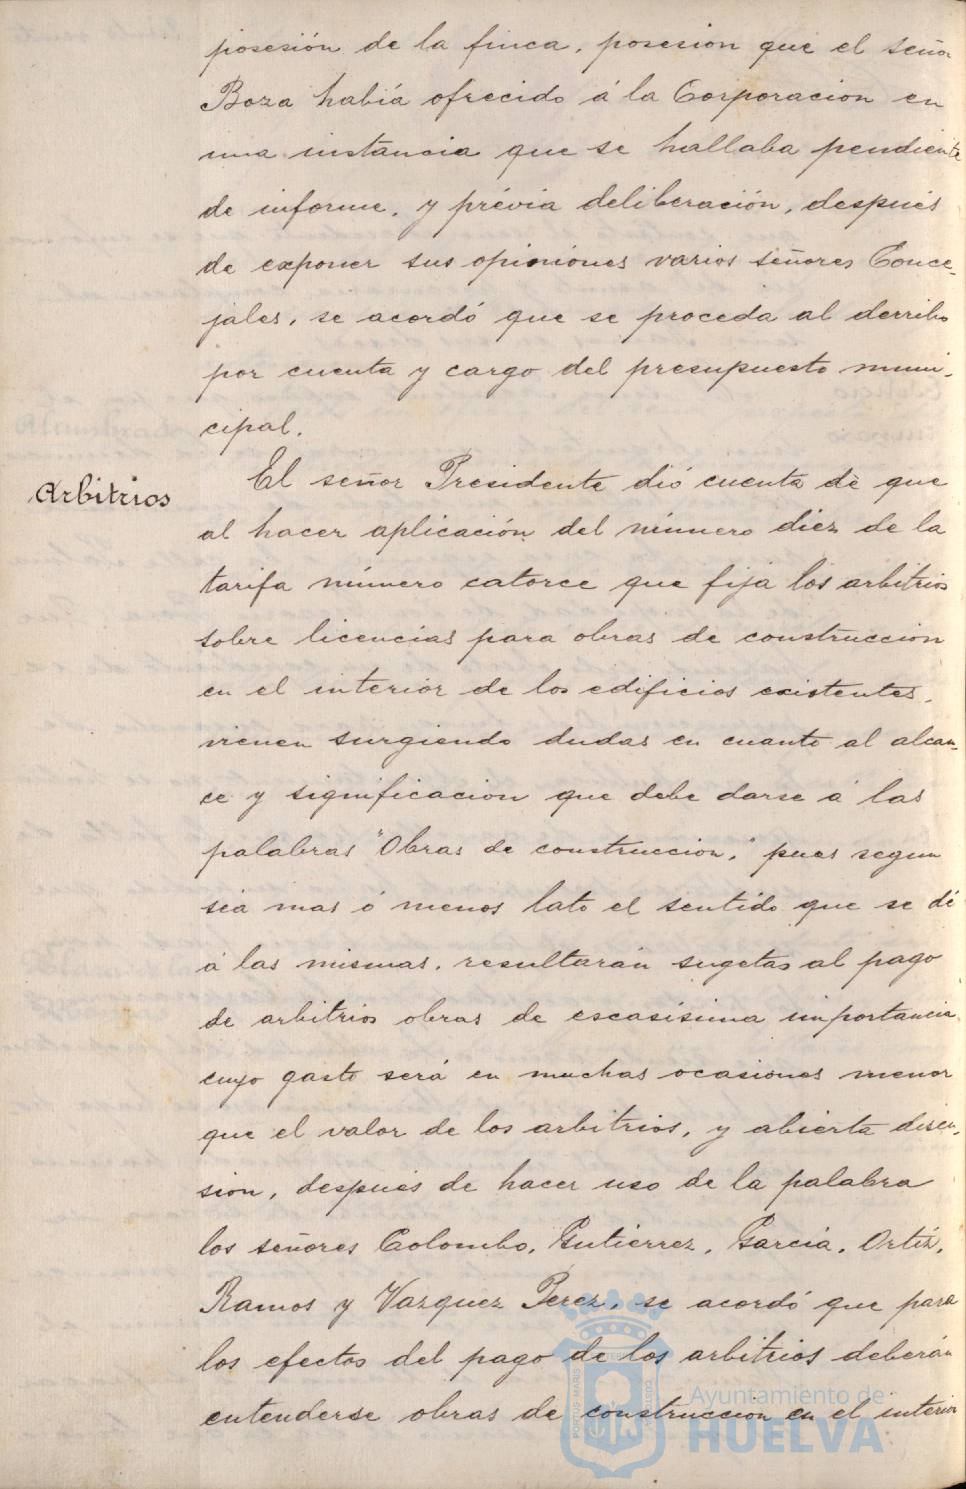 posesión de la finca, posesion que el señor
Boza había ofrecido á la Corporacion en
una instancia que se hallaba pendiente
de informe, y prévia deliberación, después
de exponer sus opiniones varios señores Conce-
jales, se acordó que se proceda al derribo
por cuenta y cargo del presupuesto muni-
cipal.
Arbitrios
El señor Presidente dió cuenta de que
al hacer aplicación del número diez de la
tarifa número catorce que fija los arbitrios
sobre licencias para obras de construccion
en el interior de los edificios existentes,
vienen surgiendo dudas en cuanto al alcan-
ce y significacion que debe darse á las
palabras "Obras de construccion," pues segun
sea mas ó menos lato el sentido que se dé
á las mismas, resultarán sugetas al pago
de arbitrios obras de escasísima importancia
cuyo gasto será en muchas ocasiones menor
que el valor de los arbitrios, y abierta discu-
sion, después de hacer uso de la palabra
los señores Colombo, Gutierrez, García, Ortiz,
Ramos y Vazquez Perez, se acordó que para
los efectos del pago de los arbitrios deberán
entenderse obras de construccion en el interior
Ayuntamiento de
HUELVA